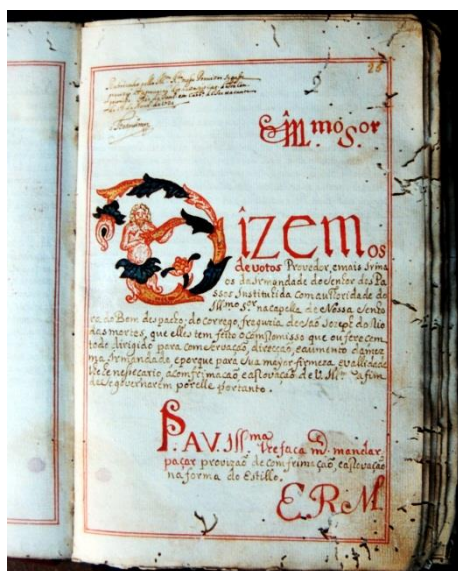 26
2
Illmo. e S.or
Dizemos
devotos Provedor, e mais Irma
os da Irmandade do Senhor dos Pa
ssos Instituida com authoridade do
Illmo. Sr. na capella de Nossa Senho
ra do Bom despacho do corrego, freguzia de São Joseph do Rio
das mortes, que elles tem feito o compromisso que offerecem
todo dirigido para comservação, direcção, e aumento da mez
ma Irmandade, e porque para sua mayor firmeza e vallidade
he necesario, a comfirmação, e aprovação de V. Illma. a fim
de se governarem por elle portanto.
P. A V. Illma.
lhe faça m. mandar
paçar provizão de comfirmação, e aprovação
na forma do Estillo.
E. R. M.